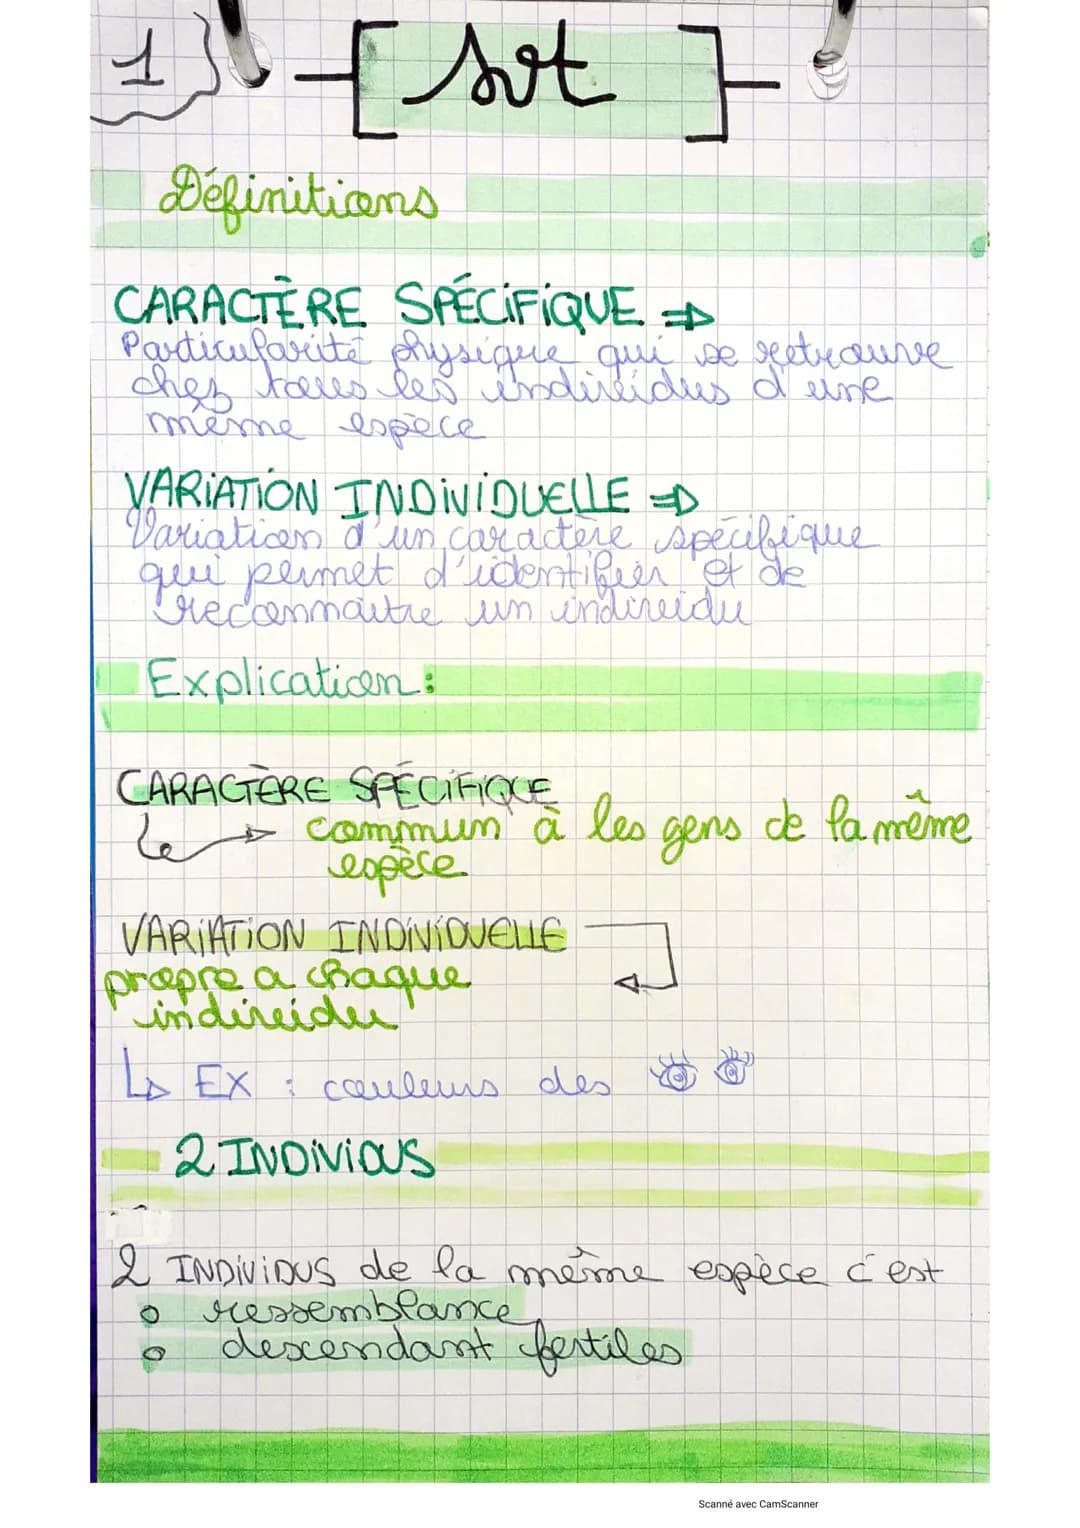 1
Svt
Définitions
CARACTÈRE SPÉCIFIQUE ⇒
Particularité physique qui se retrouve
chez tous les individus d'une
même espèce
VARIATION INDIVIDUELLE ⇒
Variation d'un caractère spécifique
qui permet d'identifier et de
reconnaître un individu
Explication :
CARACTÈRE SPÉCIFIQUE
commun à les gens de la même
espèce
VARIATION INDIVIDUELLE
propre a chaque
individu
↳ EX : couleurs des
2 INDIVIDUS
2 INDIVIDUS de la même espèce c'est
o ressemblance
o descendant fertiles
Scanné avec CamScanner